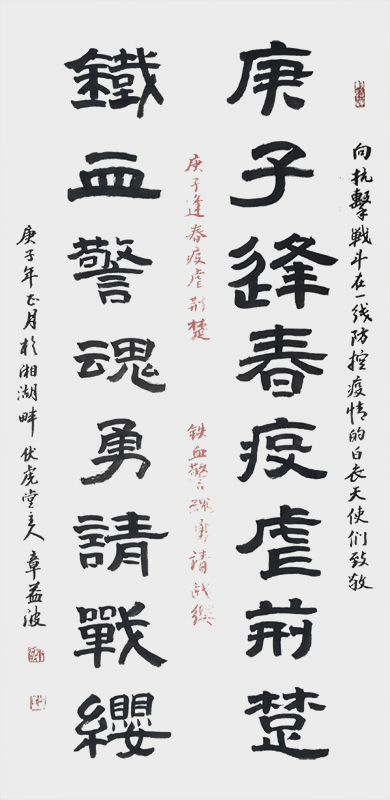 向抗擊戰斗在一线防控疫情的白衣天使们致敬
庚子逢春疫虐荊楚
庚子逢春疫虐荆楚
铁血警魂勇請战缨
鐵血警魂勇請戰纓
庚子年正月於湘湖畔 伏虎堂主人 章益波